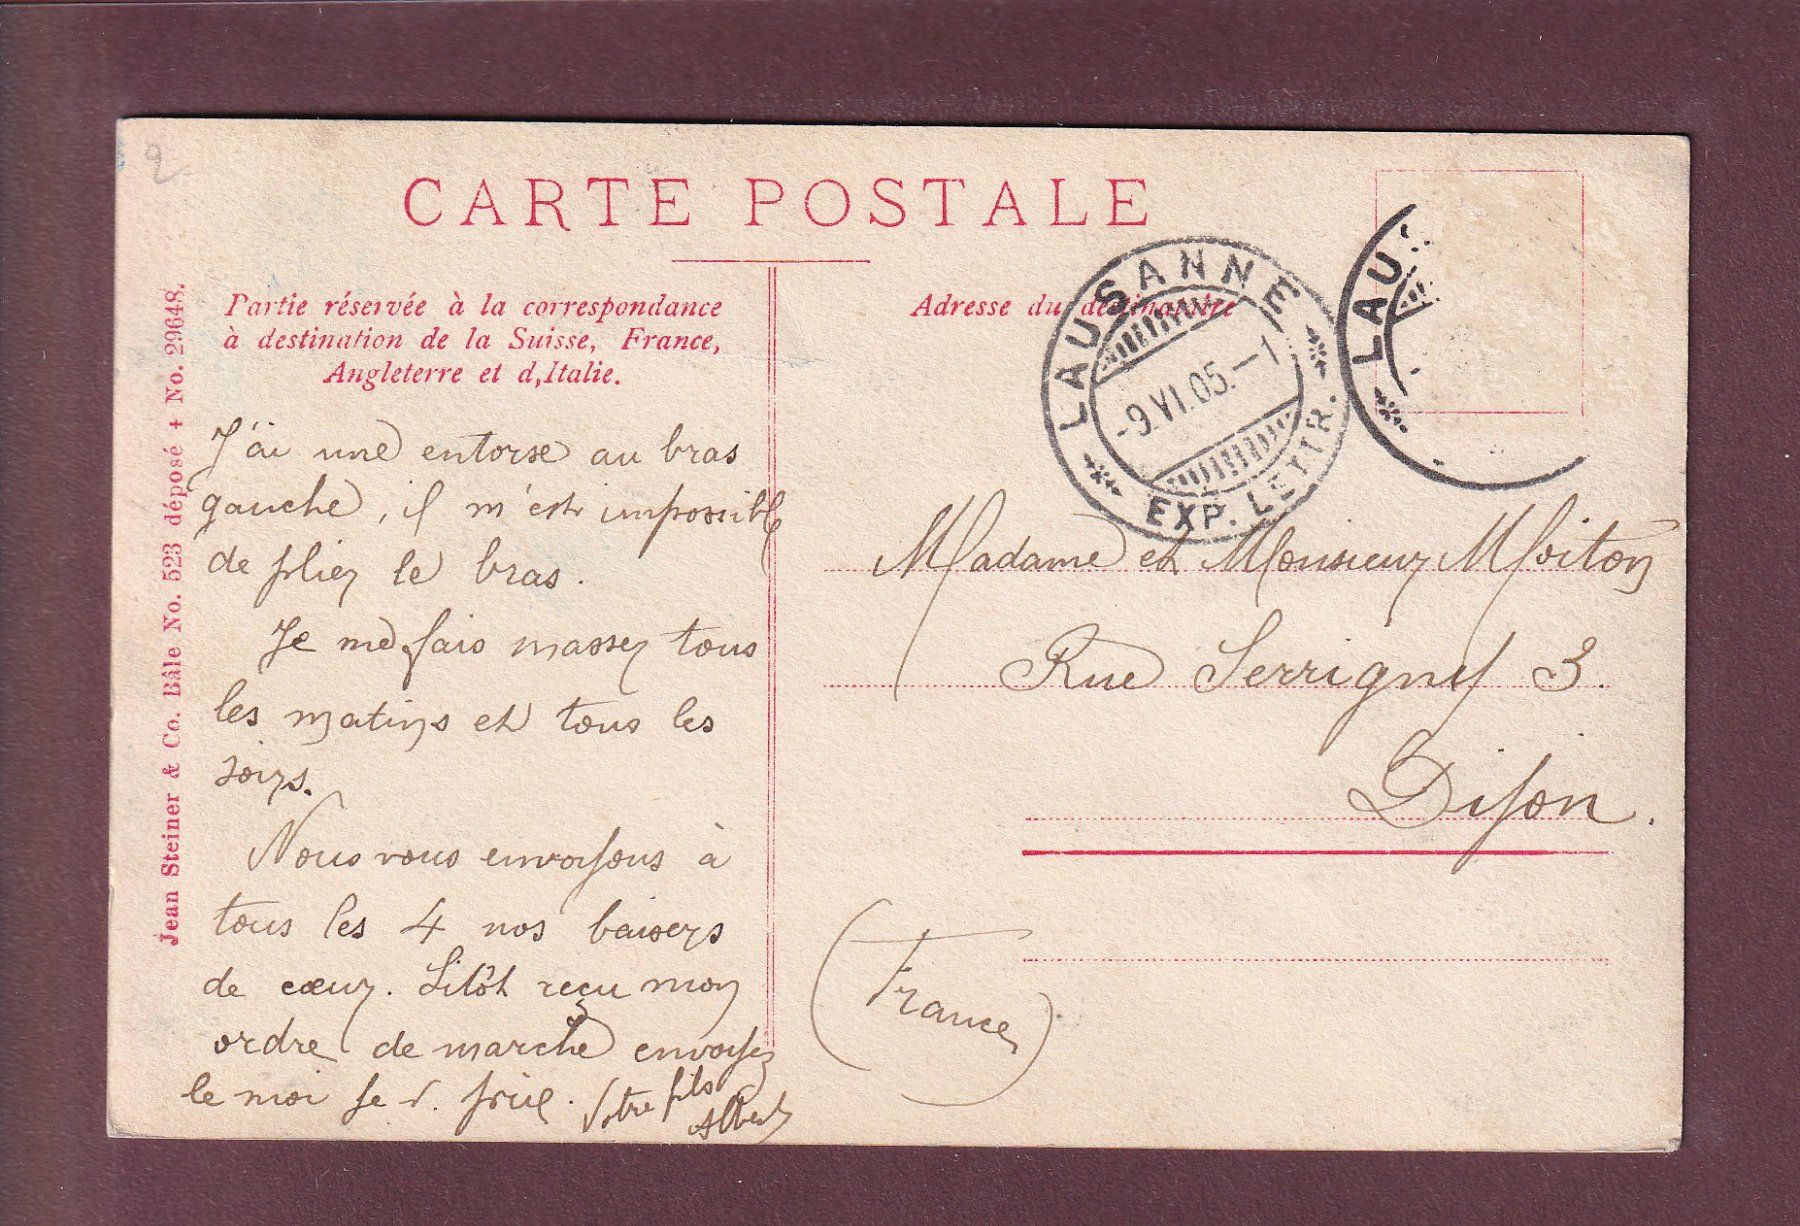 2
CARTE POSTALE
Partie réservée à la correspondance
à destination de la Suisse, France,
Angleterre et d,Italie.
Adresse du destinataire
Jean Steiner & Co. Bâle No. 523 déposé + No. 29648.
LAUSANNE
-9.VI.05.-1
EXP. LETTR.
LAU
J'ai une entorse au bras
gauche, il m'est impossible
de plier le bras.
Je me fais masser tous
les matins et tous les
soirs.
Nous vous envoyons à
tous les 4 nos baisers
de cœur. Sitôt reçu mon
ordre de marche envoyez
le moi je v. prie. Votre fils
Albert
Madame et Monsieur Moiton
Rue Serrigny 3.
Dijon.
(France)